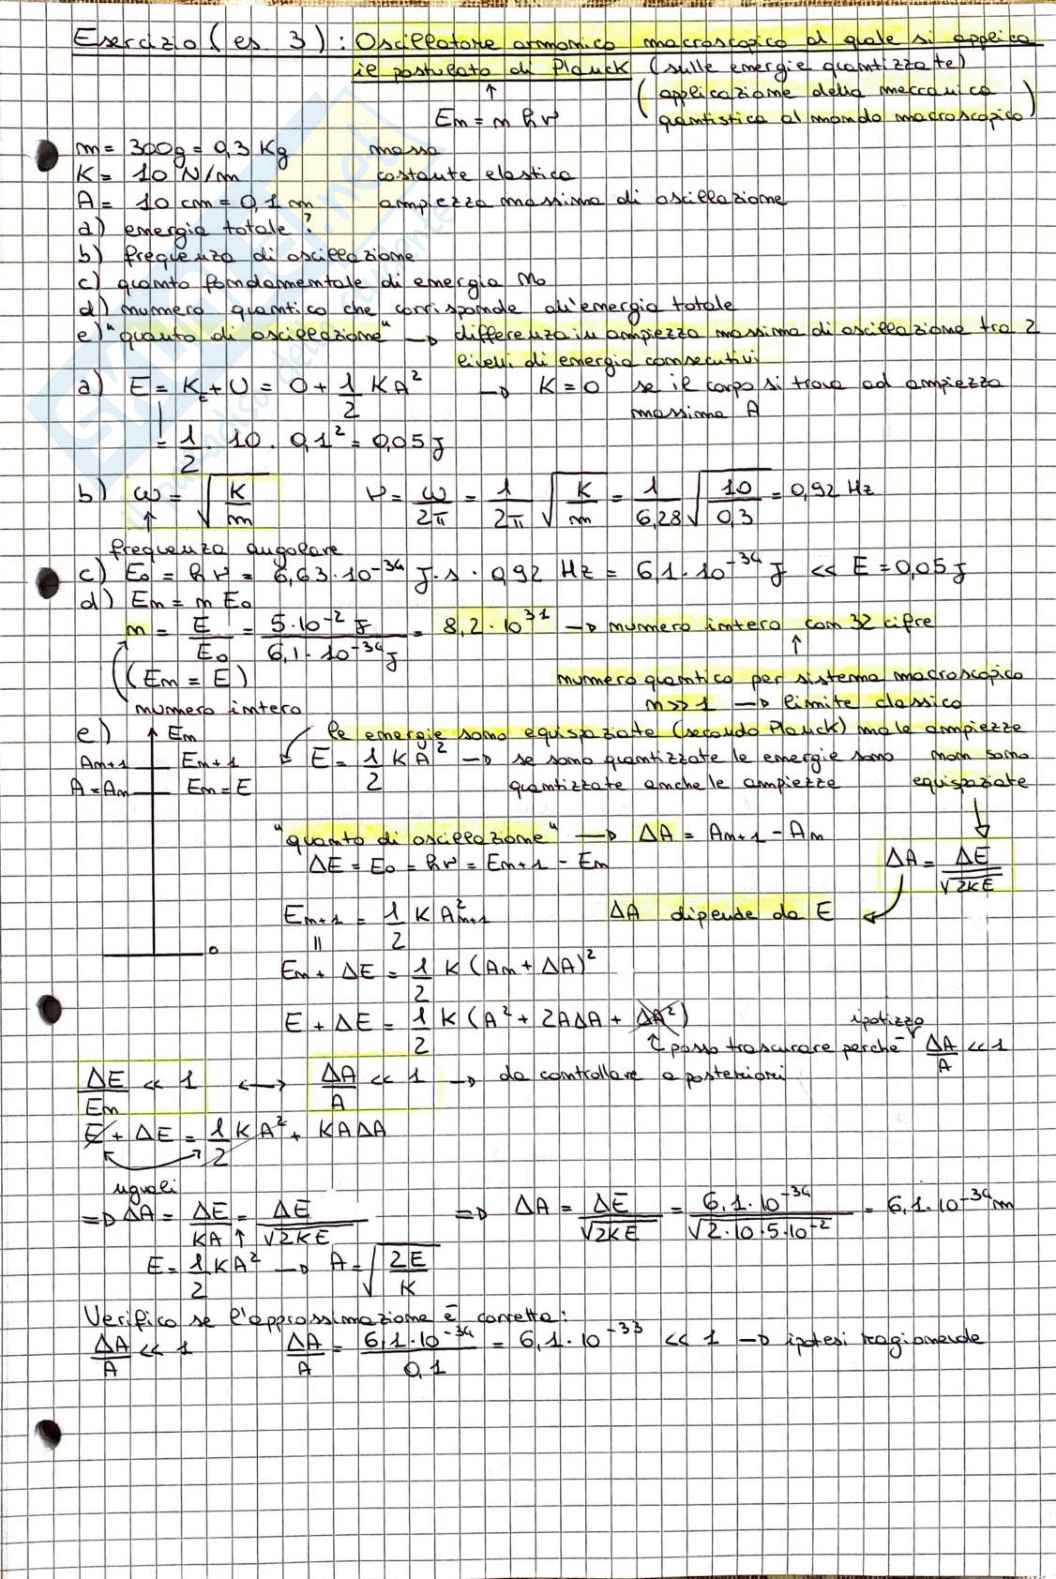 Esercizio (es 3): Oscillatore armonico macroscopico al quale si applica
il postulato di Planck (sulle energie quantizzate)
↑
(applicazione della meccanica
En = n h ν
quantistica al mondo macroscopico)
m = 300g = 0,3 Kg massa
K = 10 N/m costante elastica
A = 10 cm = 0,1 m ampiezza massima di oscillazione
a) energia totale?
b) frequenza di oscillazione
c) quanto fondamentale di energia
d) numero quantico che corrisponde all'energia totale
e) "quanto di oscillazione" → differenza in ampiezza massima di oscillazione tra 2
livelli di energia consecutivi
a) E = Kε + U = 0 + 1/2 KA² → K = 0 se il corpo si trova ad ampiezza
massima A
= 1/2 · 10 · 0,1² = 0,05 J
b) ω = √(K/m) ν = ω/2π = 1/2π √(K/m) = 1/6,28 √(10/0,3) = 0,92 Hz
↑
frequenza angolare
c) E₀ = h ν = 6,63·10⁻³⁴ J·s · 0,92 Hz = 6,1·10⁻³⁴ J << E = 0,05 J
d) En = n E₀
n = E/E₀ = 5·10⁻² J / 6,1·10⁻³⁴ J = 8,2·10³¹ → numero intero con 32 cifre
↑
(En = E) numero quantico per sistema macroscopico
numero intero n >> 1 → limite classico
e) En le energie sono equispaziate (secondo Planck) ma le ampiezze
An+1 En+1 E = 1/2 KA² → se sono quantizzate le energie sono non sono
A = An En = E quantizzate anche le ampiezze equispaziate
"quanto di oscillazione" → ΔA = An+1 - An
ΔE = E₀ = hν = En+1 - En ΔA = ΔE/√2KE
En+1 = 1/2 K A²n+1 ΔA dipende da E
0
En + ΔE = 1/2 K (An + ΔA)²
E + ΔE = 1/2 K (A² + 2AΔA + ΔA²) ipotizzo
posso trascurare perché ΔA/A << 1
ΔE/En << 1 ↔ ΔA/A << 1 → da controllare a posteriori
E + ΔE = 1/2 KA² + KAΔA
uguali
⇒ ΔA = ΔE/KA = ΔE/√2KE ⇒ ΔA = ΔE/√2KE = 6,1·10⁻³⁴/√2·10·5·10⁻² = 6,1·10⁻³⁴ m
↑
E = 1/2 KA² → A = √(2E/K)
Verifico se l'approssimazione è corretta:
ΔA/A << 1 ΔA/A = 6,1·10⁻³⁴/0,1 = 6,1·10⁻³³ << 1 → ipotesi ragionevole